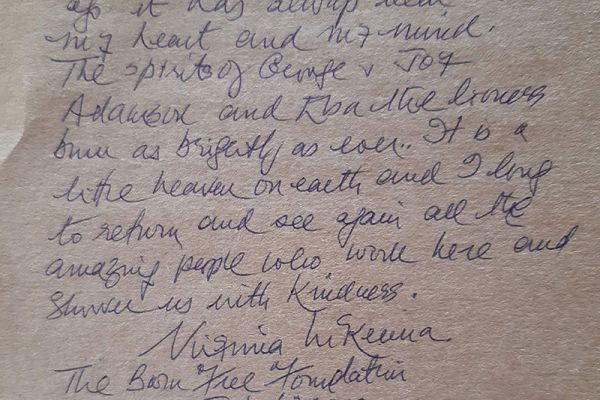 ago it has always been
my heart and my mind.
The spirits of George & Joy
Adamson and Elsa the lioness
burn as brightly as ever.. It is a
little heaven on earth and I long
to return and see again all the
amazing people who work here and
shower us with kindness.
Virginia McKenna
The Born "Free" Foundation